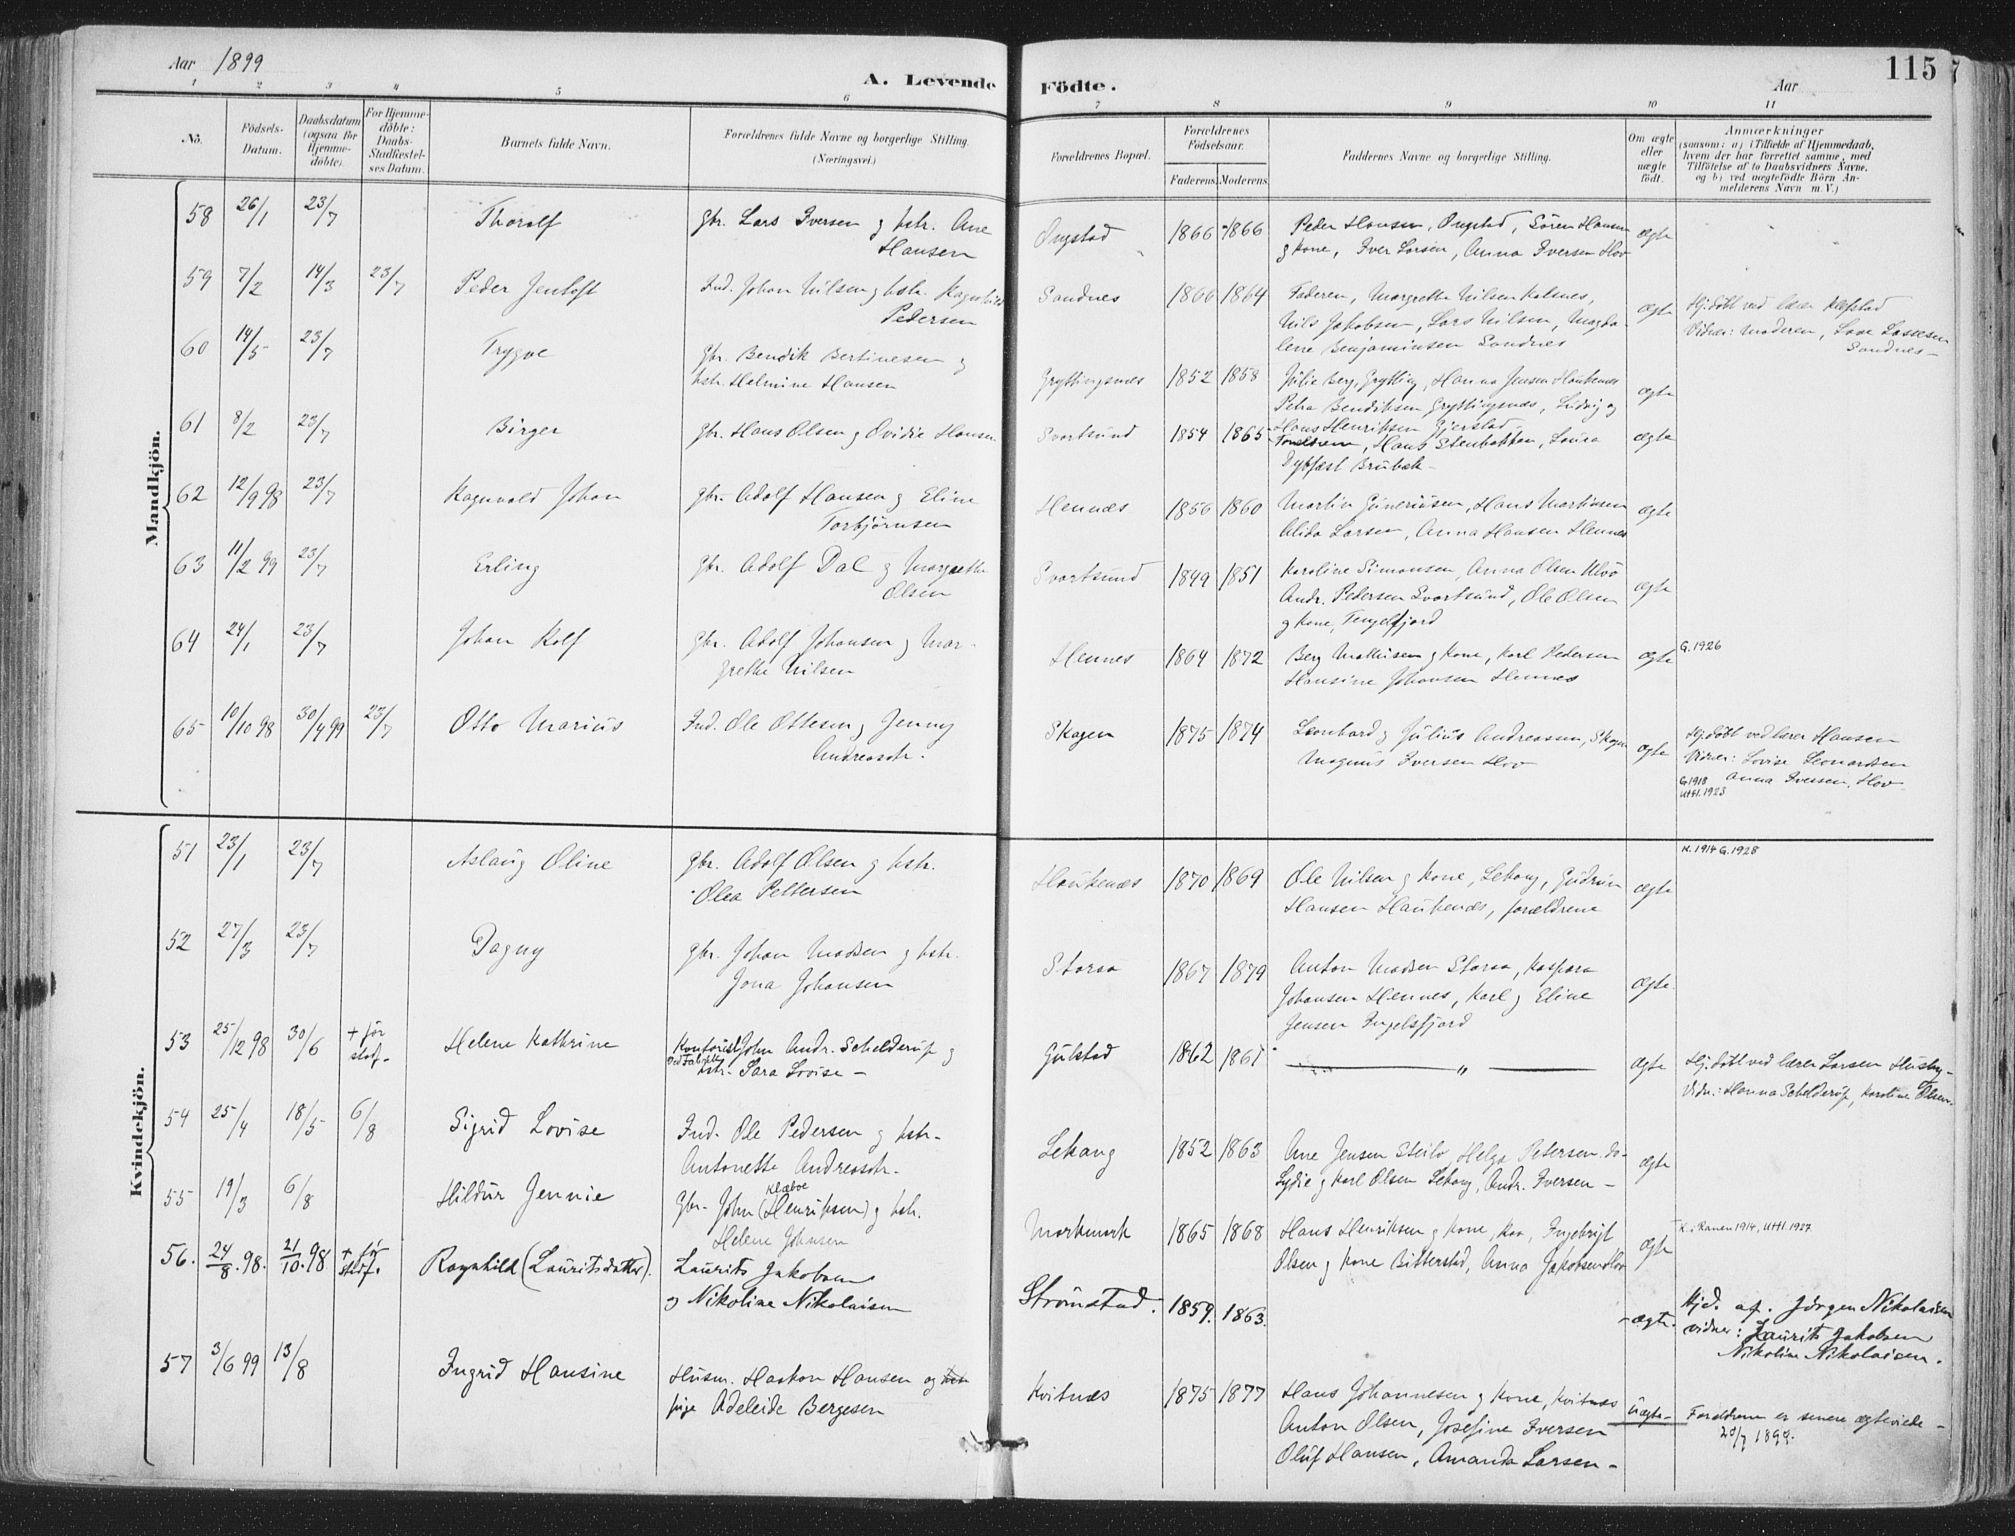 Aar 1899
A. Levende Födte.
Aar
115
1 2 3 4 5 6 7 8 9 10 11
No.
Födsels-
Datum.
Daabsdatum
(ogsaa for
Hjemme-
döbte).
For Hjemme-
döbte:
Daabs-
Stadfæstel-
ses Datum.
Barnets fulde Navn.
Forældrenes fulde Navne og borgerlige Stilling.
(Næringsvei.)
Forældrenes Bopæl.
Forældrenes
Födselsaar.
Faderens. Moderens.
Faddernes Navne og borgerlige Stilling.
Om ægte
eller
uægte
födt.
Anmærkninger
(saasom: a) i Tilfælde af Hjemmedaab,
hvem der har forrettet samme, med
Tilföielse af to Daabsvidners Navne,
og b) ved uægtefödte Börn An-
melderens Navn m. V.)
Mandkjön.
58 26/1 23/7 Thorolf Gbr. Lars Iversen g hstr. Ane
Hansen
Ongstad 1866 1866 Peder Hansen, Ongstad, Sören Hansen
g kone, Iver Larsen, Anna Iversen Hov
ægte
59 7/2 14/3 23/7 Peder Jentoft Ind. Johan Nilsen g hstr. Ragnhild
Pedersen
Sandnes 1866 1864 Faderen, Margrethe Nilsen Kalsnes,
Nils Jakobsen, Lars Nilsen, Magda-
lene Benjaminsen Sandnes
ægte Hj.döbt ved lærer Klefstad
Vidner: Moderen, Lase Lassesen
Sandnes-
60 14/5 23/7 Trygve Gbr. Bendik Bertinesen g
hstr. Helmine Hansen
Gryttingsnes 1852 1858 Julie Berg, Grytting, Hanna Jensen Haukenæs
Petra Bendiksen Gryttingsnæs, Ludvig og
Hans Henriksen Gjerstad
ægte
61 8/2 23/7 Birger Gbr. Hans Olsen g Ovidie Hansen
Svortsund 1854 1865 Forældrene, Hans Stenbakken, Laura
Dybfæst Brubæk-
ægte
62 12/9 98 23/7 Ragnvald Johan Gbr. Adolf Hansen g Eline
Torbjörnsen
Hennæs 1856 1860 Martin Guneriusen, Hans Martinsen
Alida Larsen, Anna Hansen Hennes
ægte
63 11/2 99 23/7 Erling Gbr. Adolf Dal g Margrethe
Olsen
Svortsund 1849 1851 Karoline Simonsen, Anna Olsen Ulvö
Andr. Pedersen Svortsund, Ole Olsen
g kone, Tengelfjord
ægte
64 24/1 23/7 Johan Rolf Gbr. Adolf Johansen g Mar-
grethe Nilsen
Hennes 1864 1872 Berg Mathisen g kone, Karl Pedersen
Hansine Johansen Hennes
ægte G. 1926
65 10/10 98 30/4 99 23/7 Otto Marius Ind. Ole Ottesen g Jenny
Andreasdtr.
Skagen 1875 1874 Leonhard g Julius Andreassen, Skagen
Magnus Iversen Hov
ægte Hj.döbt ved lærer Hansen
Vidner: Lovise Leonardsen
Anna Iversen, Hov
G.1918
Uttl.1923
Kvindekjön.
51 23/1 23/7 Aslaug Oline Gbr. Adolf Olsen g hstr.
Olea Pettersen
Haukenæs 1870 1869 Ole Nilsen g kone, Lekang, Gudrun
Hansen Haukenæs, forældrene
ægte K. 1914 G. 1928
52 27/3 23/7 Dagny Gbr. Johan Madsen g hstr.
Jona Johansen
Storaa 1867 1879 Anton Madsen Storaa, Kaspara
Johansen Hennes, Karl g Eline
Jensen Ingelsfjord
ægte
53 25/12 98 30/6 + för
stadf. Helene Kathrine Kontorist John Andr. Schelderup g
ved Fabrikk
hstr. Sara Lovise -
Gulstad 1862 1861 " ægte Hj.döbt ved lærer Larsen Husby-
Vidn.: Hanna Schelderup, Karoline Olsen.
54 25/4 18/5 6/8 Sigrid Lovise Ind. Ole Pedersen g hstr-
Antonette Andreasdtr-
Lekang 1852 1863 Ane Jensen Steilo Helga Petersen do-
Lydie g Karl Olsen Lekang, Andr. Iversen -
ægte
55 19/3 6/8 Hildur Jennie Gbr. John (Henriksen) g hstr.
Klæboe
Helene Johnsen
Markmark 1865 1868 Hans Henriksen g kone, Kaa, Ingebrigt
Olsen g kone Bitterstad, Anna Jakobsen Hov
ægte K. i Ranen 1914, Uttl. 1927
56. 24/8.98. 21/10.98 + för
stadf. Ragnhild (Lauritsdatter). Laurits Jakobsen
og Nikoline Nikolaisen
Strömstad. 1859. 1863. ægte. Hjd. af. Jörgen Nikolaisen
vidner: Laurits Jakobsen
Nikoline Nikolaisen.
57 3/6 99 13/8 Ingrid Hansine Husm. Haakon Hansen og hstr
pige Adeleide Bergesen
Kvitnæs 1875 1877 Hans Johannesen g kone, Kvitnæs
Anton Olsen, Josefine Iversen
Oluf Hansen, Amanda Larsen -
uægte- Forældrene er senere ægteviede -
20/7 1899.